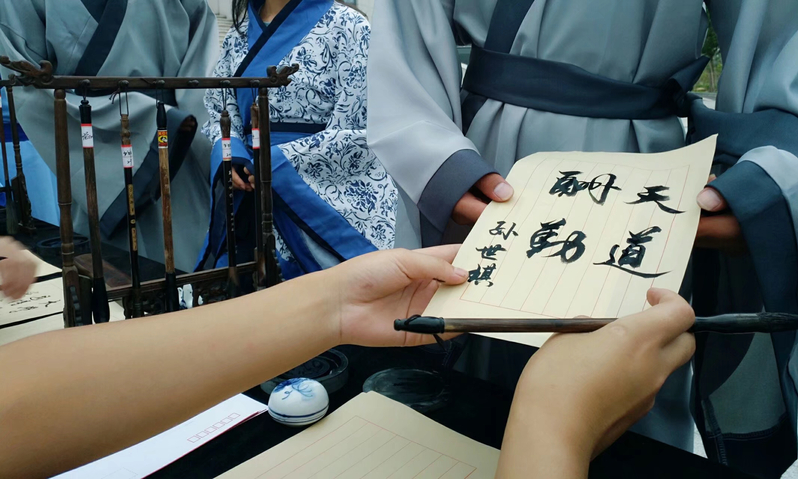 天道
酬勤
孙世祺